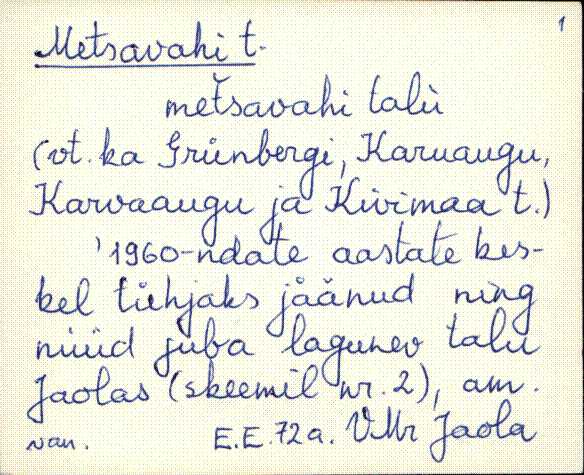 1
Metsavahi t.
metsavahi talu
(vt. ka Grünbergi, Karuaugu,
Karvaaugu ja Kivimaa t.)
'1960-ndate aastate kes-
kel tühjaks jäänud ning
nüüd juba lagunev talu
Jaolas (skeemil nr. 2), am.
van. E.E. 72 a. VMr Jaola